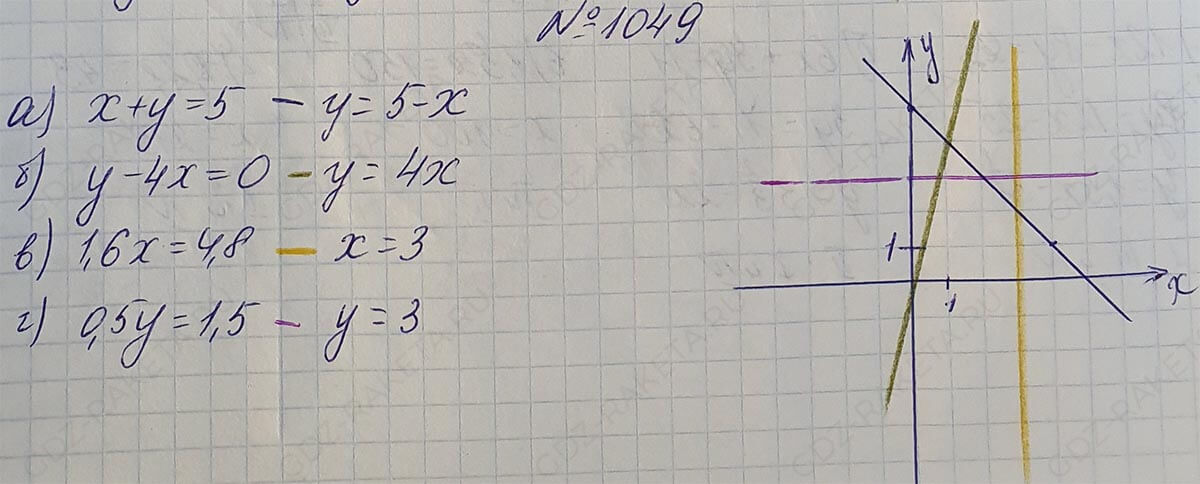 №1049
а) x+y=5 – y=5-x
б) y-4x=0 – y=4x
в) 1,6x=4,8 – x=3
г) 0,5y=1,5 – y=3
y
1
1
x
GDZ-RAKETA.RU